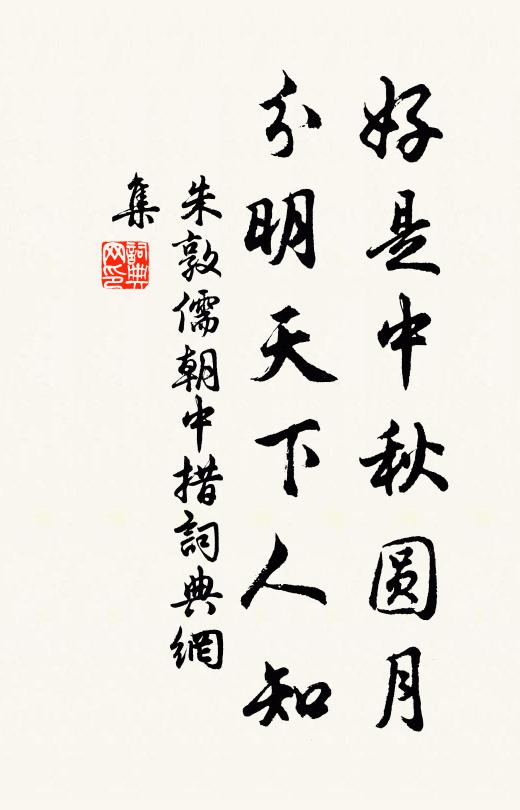 好是中秋圆月
分明天下人知
朱敦儒朝中措詞典網
集
詞典網印